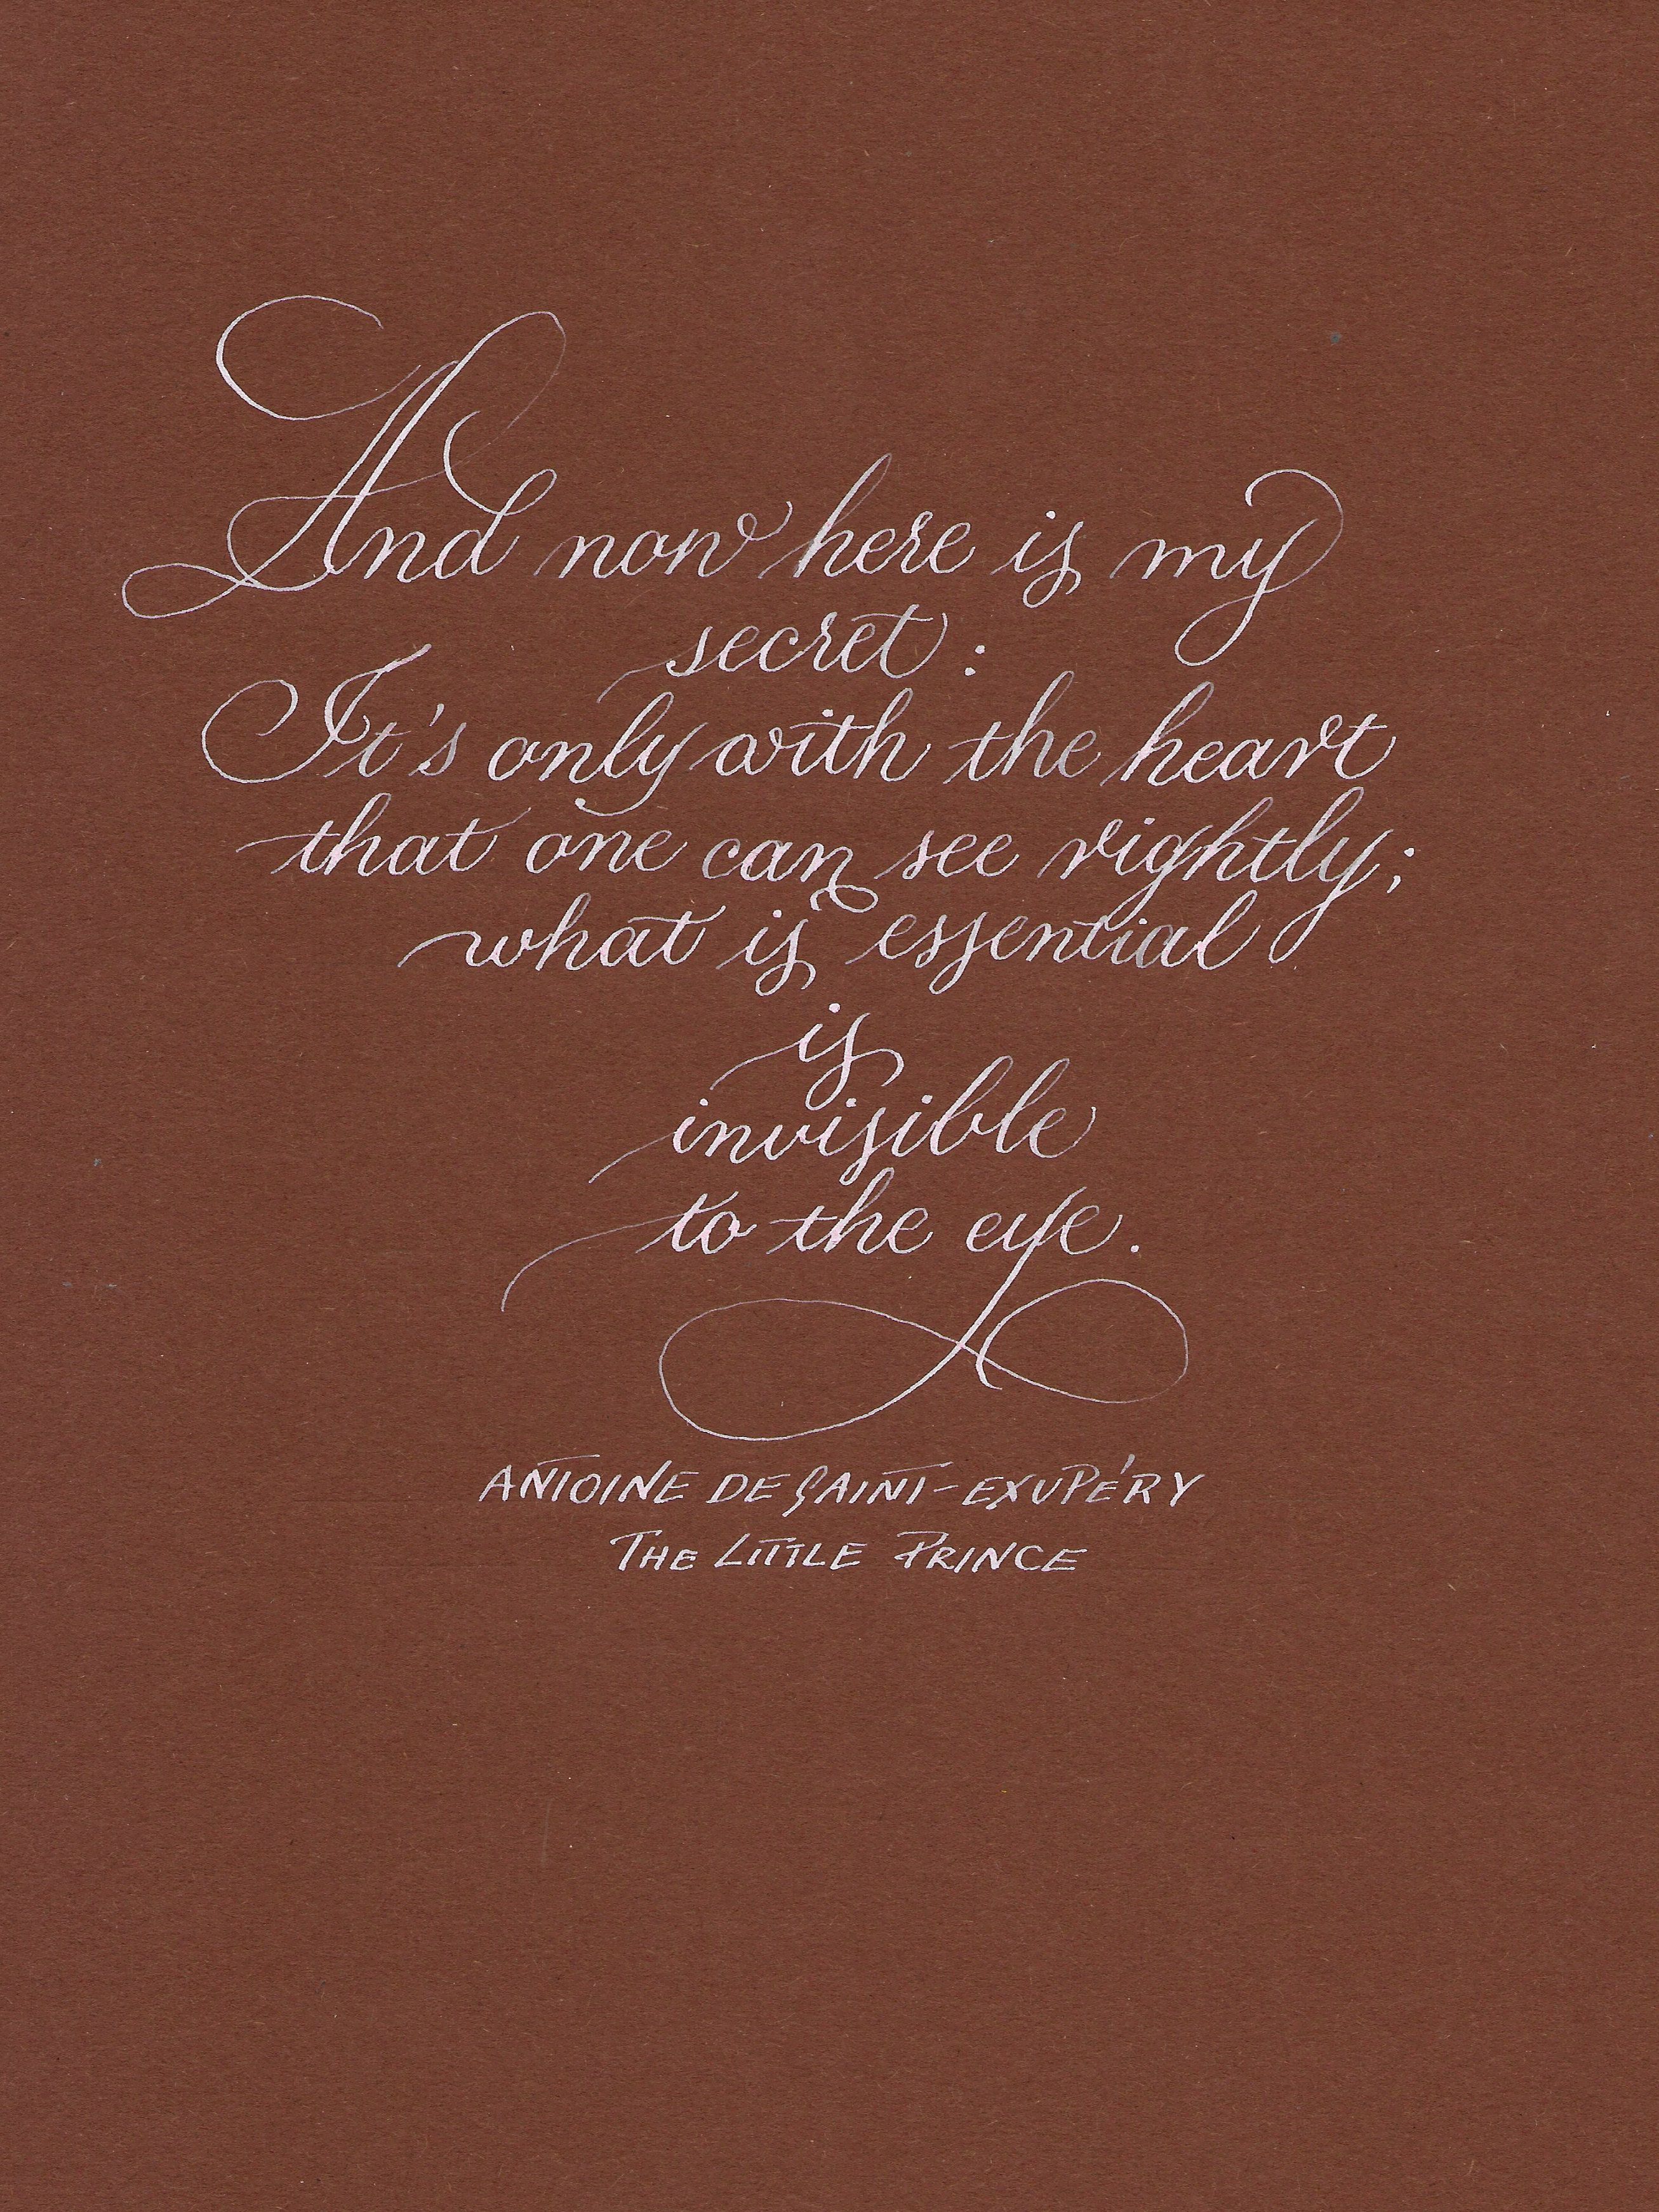 And now here is my
secret:
It's only with the heart
that one can see rightly;
what is essential
is
invisible
to the eye.
ANTOINE DE SAINT-EXUPÉRY
THE LITTLE PRINCE